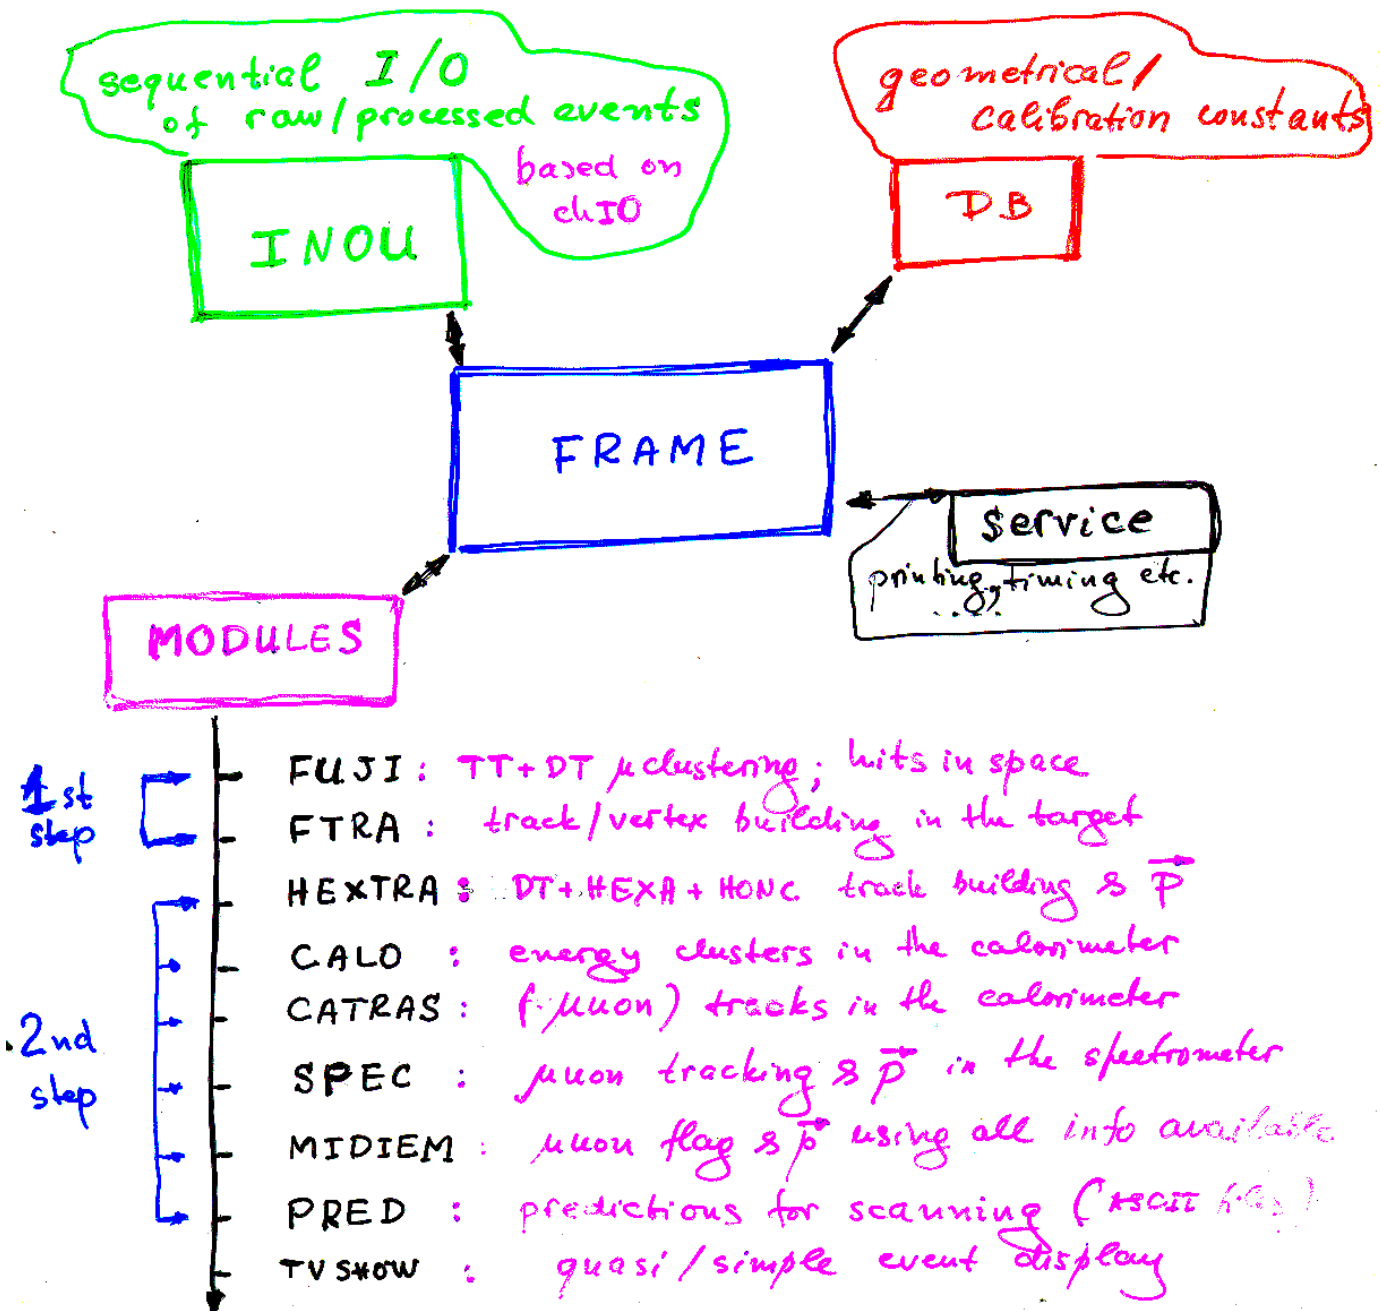 sequential I/O
of raw/processed events
based on
chIO
INOU
geometrical/
calibration constants
DB
FRAME
service
printing, timing etc.
MODULES
1st
step
FUJI : TT+DT μclustering; hits in space
FTRA : track/vertex building in the target
HEXTRA : DT+HEXA+HONC track building & p
2nd
step
CALO : energy clusters in the calorimeter
CATRAS : (μuon) tracks in the calorimeter
SPEC : μuon tracking & p in the spectrometer
MIDIEM : μuon flag & p using all info available
PRED : predictions for scanning (ASCII files)
TVSHOW : quasi/simple event display